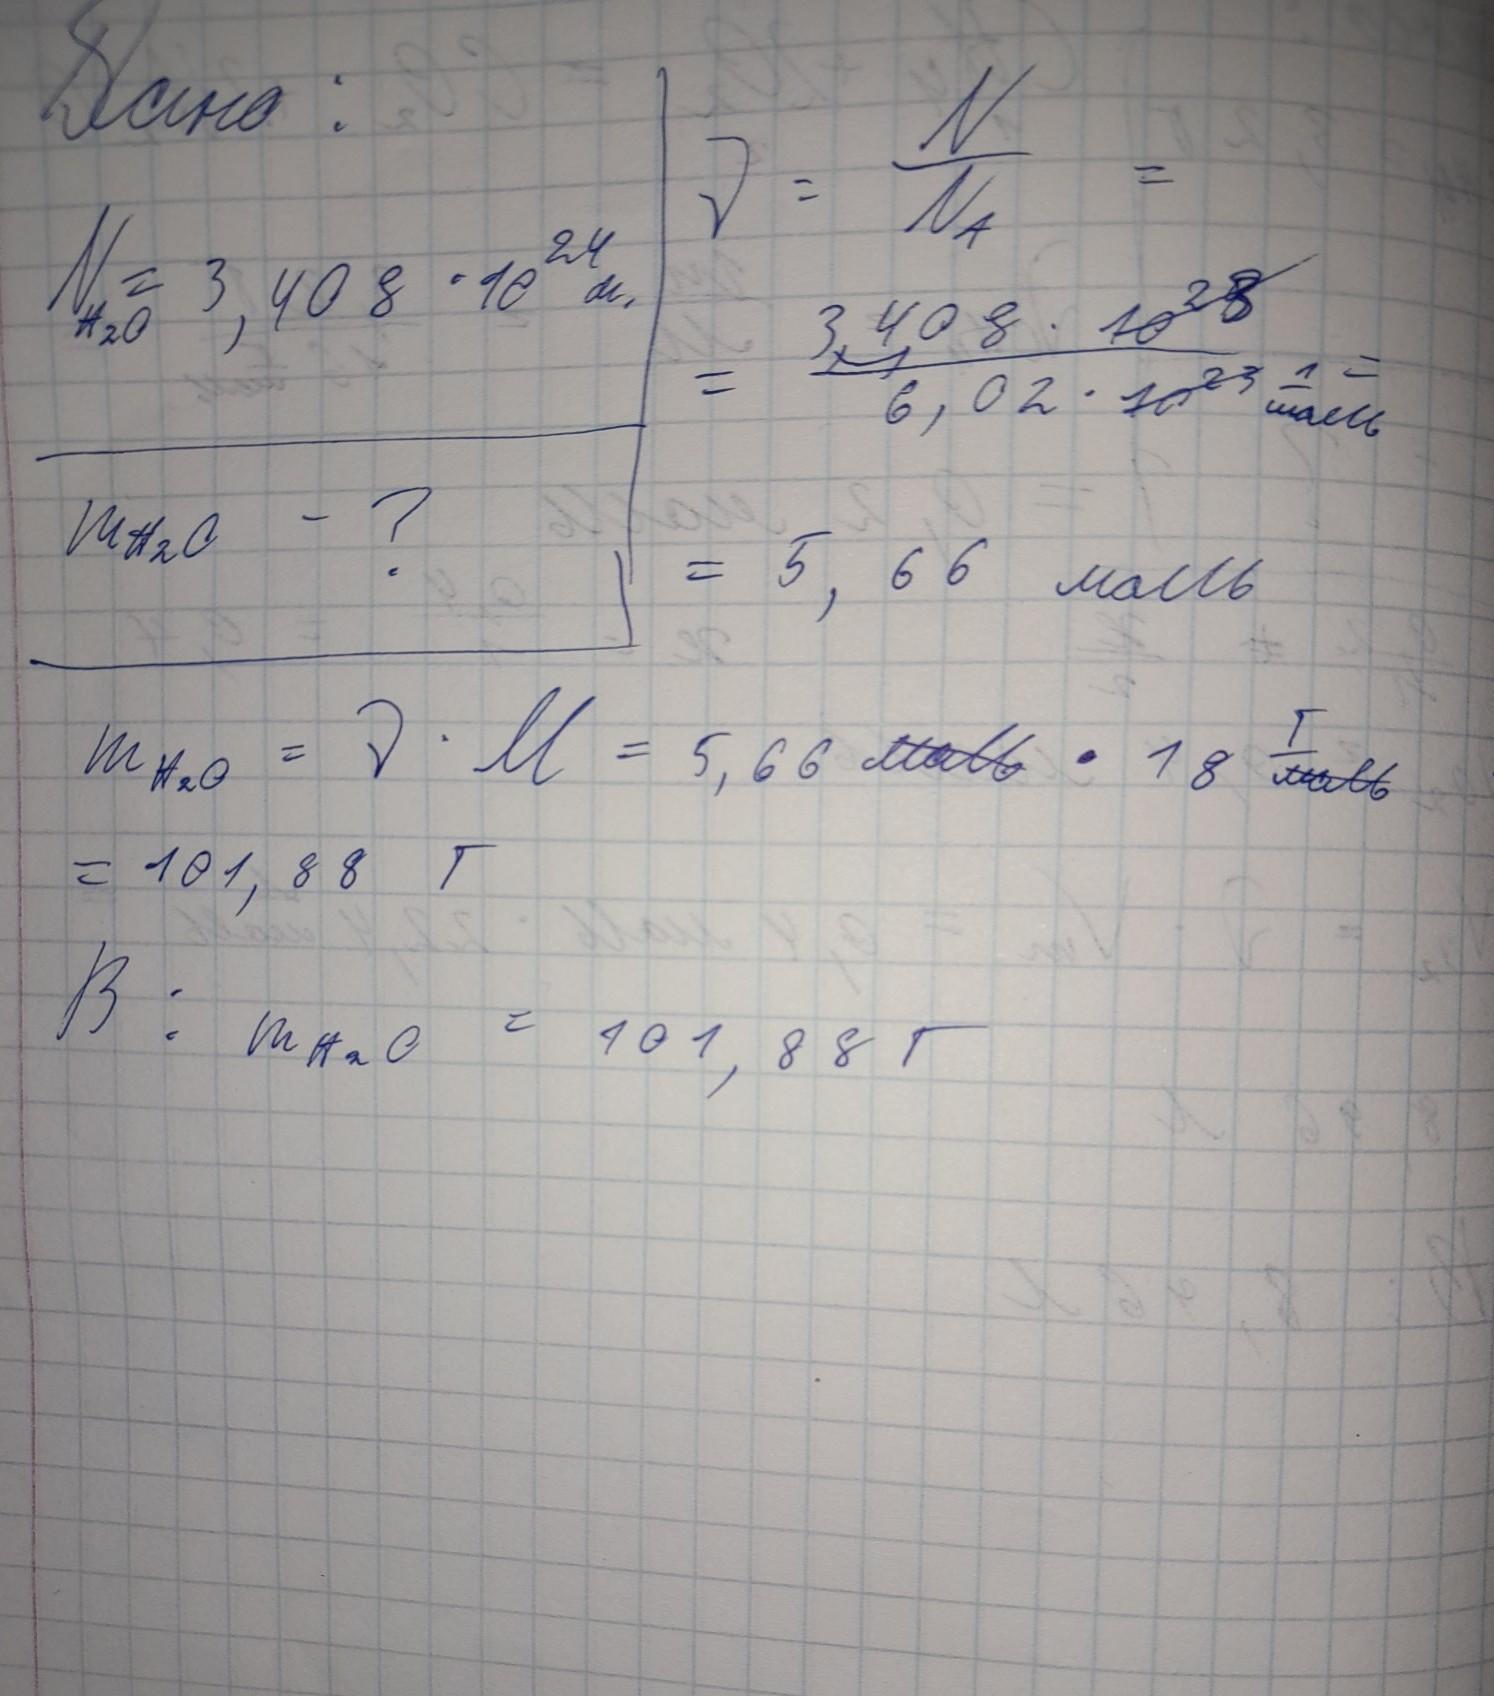 Дано:
N H₂O = 3,408 · 10²⁴ м.
m H₂O - ?
ν = N / N_A =
= 3,408 · 10²³ / 6,02 · 10²³ 1/моль =
= 5,66 моль
m H₂O = ν · M = 5,66 моль · 18 г/моль
= 101,88 г
В: m H₂O = 101,88 г